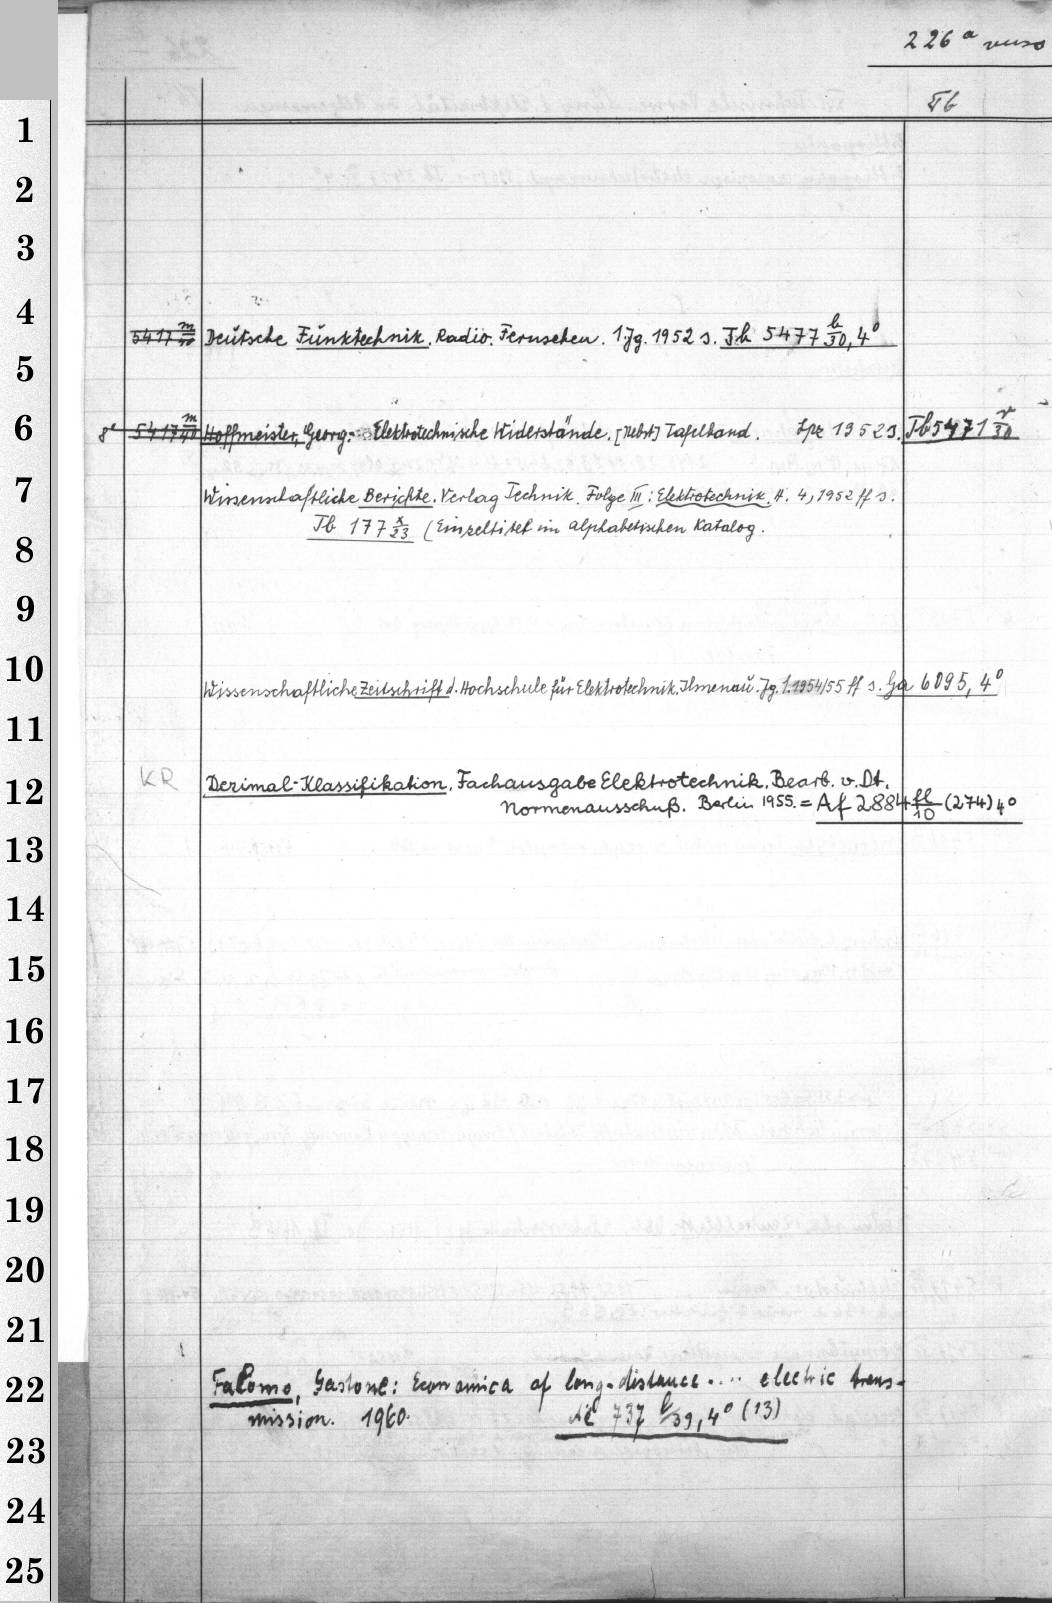 226 a verso
Tb
1
2
3
4
5417 m/40 Deutsche Funktechnik. Radio. Fernsehen. 1.Jg. 1952 s. Tb 5477 b/30, 4°
5
6
8° 5417 m/40 Hoffmeister, Georg: Elektrotechnische Widerstände. [Nebst] Tafelband. Lpz 1952 s. Tb 5471 v/30
7
Wissenschaftliche Berichte. Verlag Technik. Folge III: Elektrotechnik. H. 4, 1952 ff s.
Tb 177 x/23 (Einzeltitel im alphabetischen Katalog.
8
9
10
Wissenschaftliche Zeitschrift d. Hochschule für Elektrotechnik. Ilmenau. Jg. 1. 1954/55 ff s. Ga 6095, 4°
11
KR Dezimal-Klassifikation. Fachausgabe Elektrotechnik. Bearb. v. Dt.
12
Normenausschuß. Berlin 1955. = Af 2884 ff/10 (274) 4°
13
14
15
16
17
18
19
20
21
22
Palomo, Gastone: Economica of long-distance .... electric trans-
mission. 1960. 737 b/39, 4° (13)
23
24
25